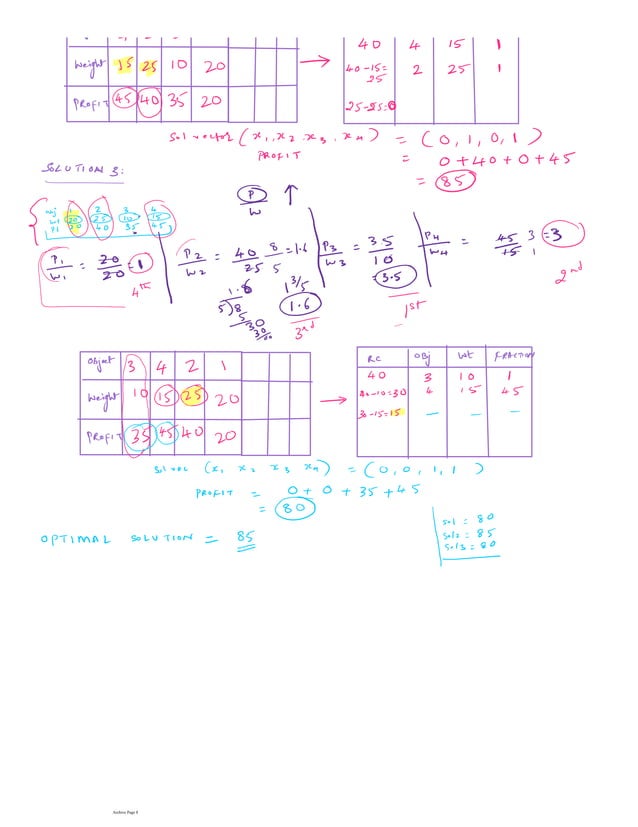 40 4 15 1
Weight 15 25 10 20
40-15= 25 2 25 1
PROFIT 45 40 35 20
25-25=0
Sol vector (x1, x2, x3, x4) = (0, 1, 0, 1)
PROFIT = 0+40+0+45
= 85
SOLUTION 3:
P/W ↑
obj 1 2 3 4
wt 20 25 10 15
P1 20 40 35 45
P1/W1 = 20/20 = 1 4th
P2/W2 = 40/25 8/5 = 1.6
P3/W3 = 35/10 = 3.5 1st
P4/W4 = 45/15 3/1 = 3 2nd
1.6
5)8
5
30
30
00
1 3/5
1.6
3rd
Object 3 4 2 1
Weight 10 15 25 20
PROFIT 35 45 40 20
RC Obj Wt FRACTION
40 3 10 1
40-10=30 4 15 45
30-15=15 — — —
Sol vec (x1 x2 x3 x4) = (0, 0, 1, 1)
PROFIT = 0+0+35+45
= 80
OPTIMAL SOLUTION = 85
Sol1 = 80
Sol2 = 85
Sol3 = 80
Archive Page 8